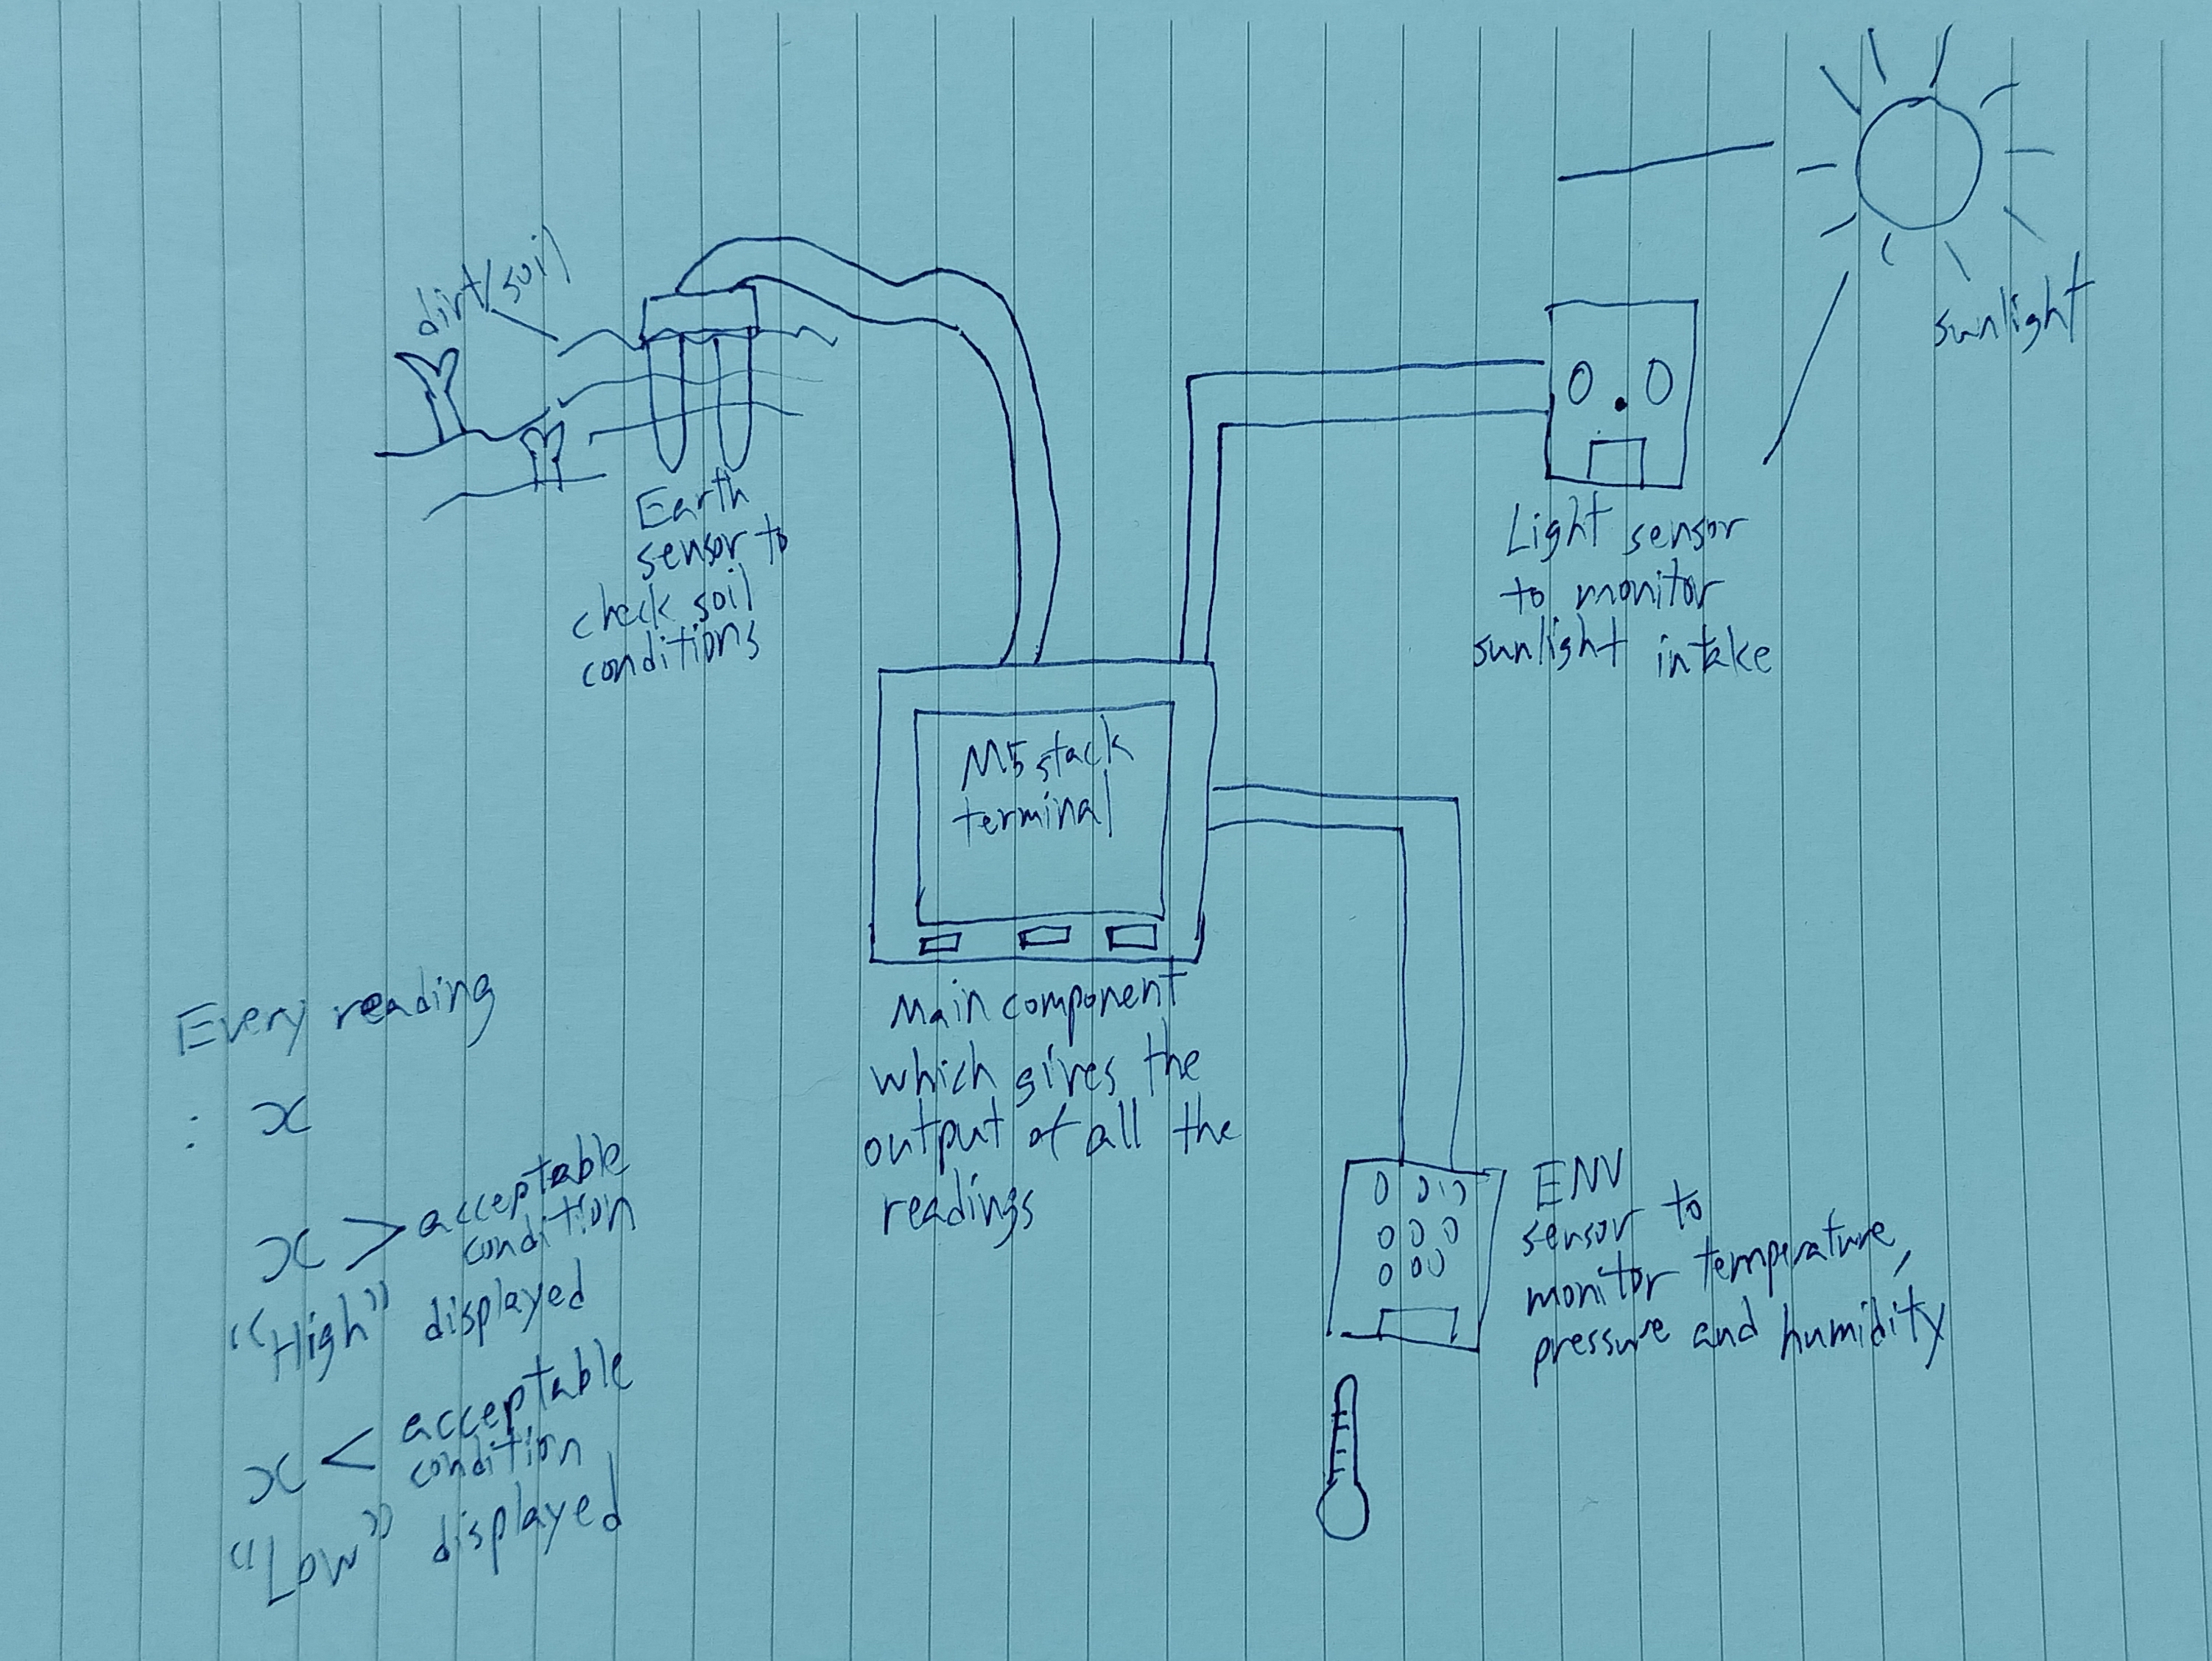 dirt/soil
sunlight
Earth
sensor to
check soil
conditions
Light sensor
to monitor
sunlight intake
M5stack
terminal
Main component
which gives the
output of all the
readings
ENV
sensor to
monitor temperature,
pressure and humidity
Every reading
: x
x > acceptable
condition
"High" displayed
x < acceptable
condition
"Low" displayed